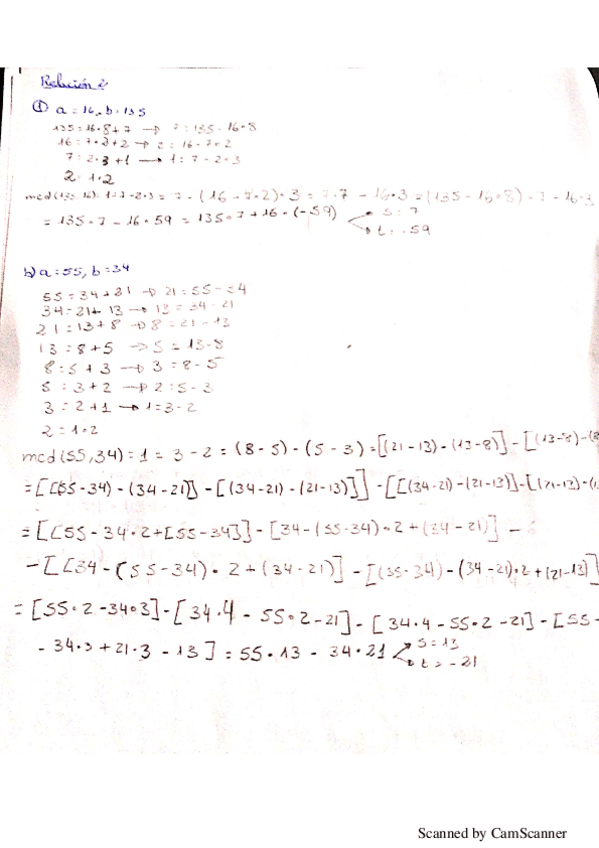 Relución 2
① a=16, b=135
135=16·8+7 → 7=135-16·8
16=7·2+2 → 2=16-7·2
7=2·3+1 → 1=7-2·3
2=1·2
mcd(135,16)=1=7-2·3=7-(16-7·2)·3=7·7-16·3=(135-16·8)·7-16·3
=135·7-16·59=135·7+16·(-59)
s=7
t=-59
b) a=55, b=34
55=34+21 → 21=55-34
34=21+13 → 13=34-21
21=13+8 → 8=21-13
13=8+5 → 5=13-8
8=5+3 → 3=8-5
5=3+2 → 2=5-3
3=2+1 → 1=3-2
2=1·2
mcd(55,34)=1=3-2=(8-5)-(5-3)=[(21-13)-(13-8)]-[(13-8)-(8
=[[(55-34)-(34-21)]-[(34-21)-(21-13)]]-[[(34-21)-(21-13)]-[(21-13)-(1
=[[55-34·2+[55-34]]-[34-(55-34)·2+(34-21)]-
-[[34-(55-34)·2+(34-21)]-[(55-34)-(34-21)·2+(21-13]]
=[55·2-34·3]-[34·4-55·2-21]-[34·4-55·2-21]-[55-
-34·3+21·3-13]=55·13-34·21
s=13
t=-21
Scanned by CamScanner